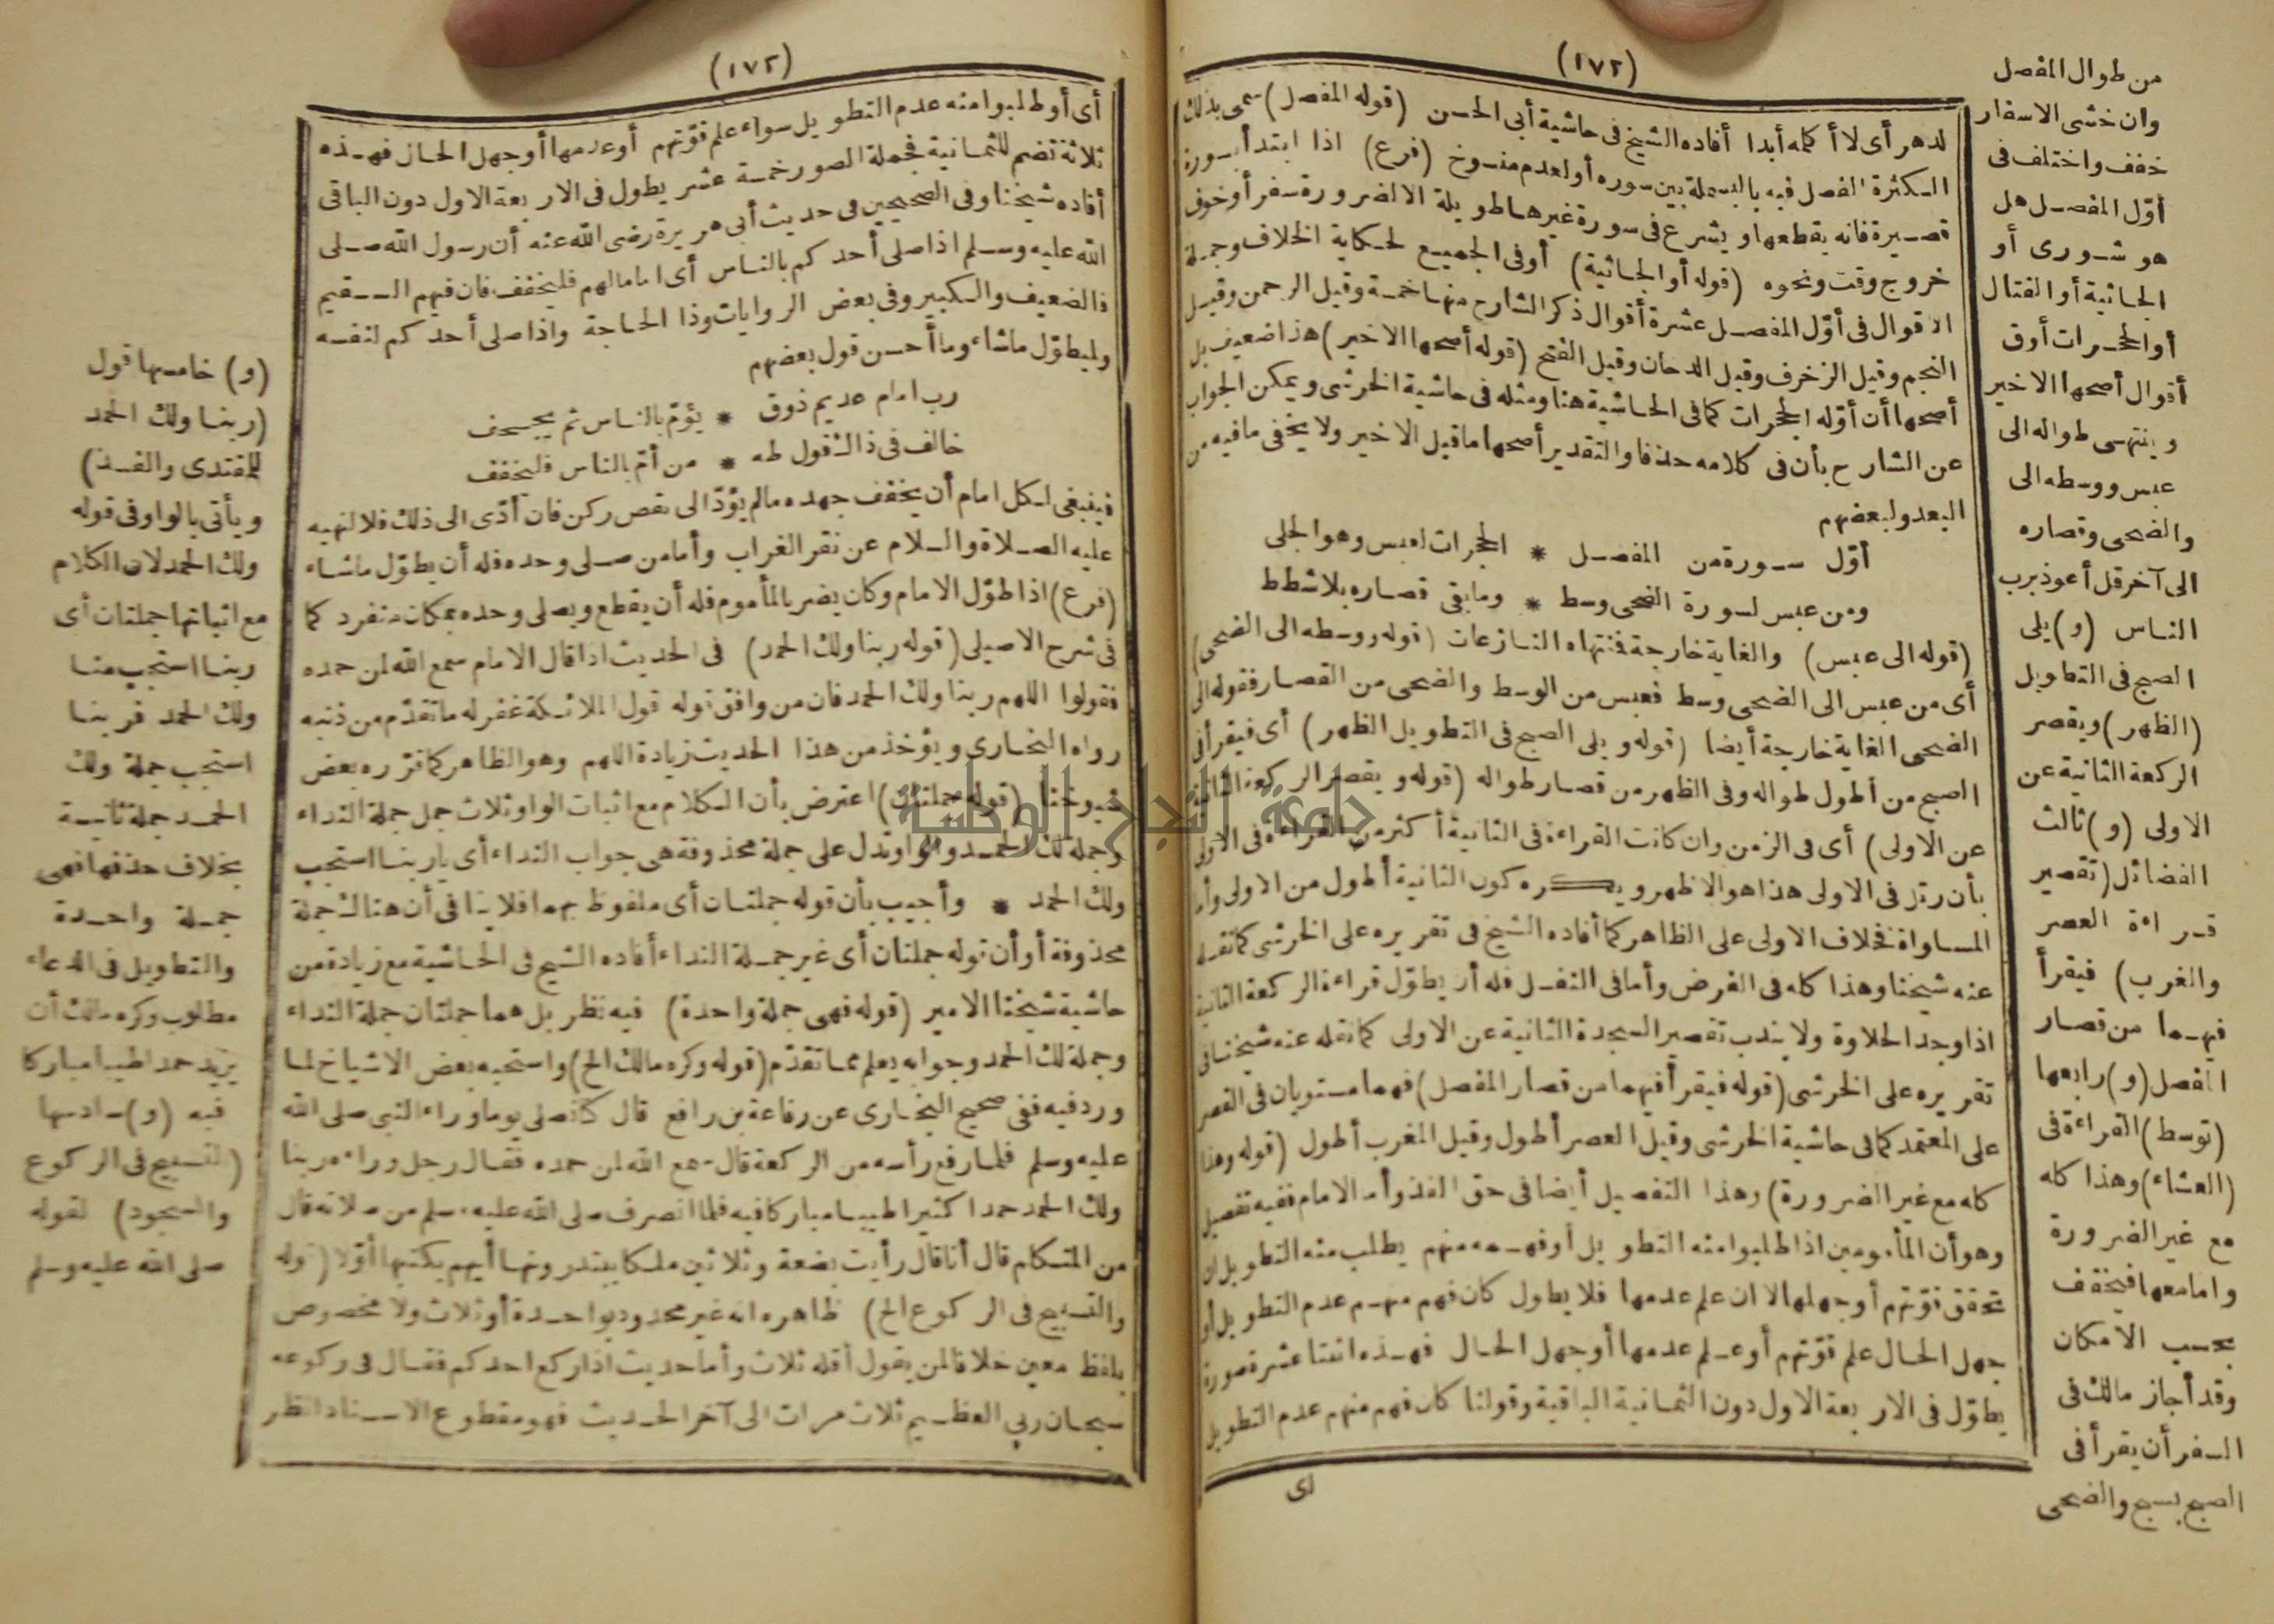 (١٧٢)
من طوال المفصل
وان خشى الاسفار
خفف واختلف فى
أوّل المفصل هل
هو شورى أو
الجاثية أو القتال
أو الحجرات أو ق
أقوال أصحها الاخير
وينتهى طواله الى
عبس ووسطه الى
والضحى وقصاره
الى آخر قل أعوذ برب
الناس (و) يلى
الصبح فى التطويل
(الظهر) ويقصر
الركعة الثانية عن
الاولى (و) ثالث
الفضائل (تقصير
قراءة العصر
والمغرب) فيقرأ
فيهما من قصار
المفصل (و) رابعها
(توسط) القراءة فى
(العشاء) وهذا كله
مع غير الضرورة
وامامعها فيخفف
بحسب الامكان
وقد أجاز مالك فى
السفر أن يقرأ فى
الصبح بسبح والضحى
لدهر أى لا أكله أبدا أفاده الشيخ فى حاشية أبى الحسن (قوله المفصل) سمى بذلك
لكثرة الفصل فيه بالبسملة بين سوره أولعدم منسوخ (فرع) اذا ابتدأ بسورة
قصيرة فانه يقطعها ويشرع فى سورة غيرها طويلة الا لضرورة سفر أوخوف
خروج وقت ونحوه (قوله أو الجاثية) أوفى الجميع لحكاية الخلاف وجملة
الاقوال فى أوّل المفصل عشرة أقوال ذكر الشارح منها خمسة وقيل الرحمن وقيل
النجم وقيل الزخرف وقيل الدخان وقيل الفتح (قوله أصحها الاخير) هذا ضعيف بل
أصحها أن أوّله الحجرات كما فى الحاشية هنا ومثله فى حاشية الخرشى ويمكن الجواب
عن الشارح بأن فى كلامه حذفا والتقدير أصحها ما قيل الاخير ولا يخفى ما فيه من
البعد ولبعضهم
أوّل سورة من المفصل * الحجرات لعبس وهو الجلى
ومن عبس لسورة الضحى وسط * وما بقى قصاره بلا شطط
(قوله الى عبس) والغاية خارجة فنتهاه النازعات (قوله ووسطه الى الضحى)
أى من عبس الى الضحى وسط فعبس من الوسط والضحى من القصار فقوله الى
الضحى الغاية خارجة أيضا (قوله ويلى الصبح فى التطويل الظهر) أى فيقرأ فى
الصبح من أطول طواله وفى الظهر من قصار طواله (قوله ويقصر الركعة الثانية
عن الاولى) أى فى الزمن وان كانت القراءة فى الثانية أكثر من القراءة فى الاولى
بأن رتل فى الاولى هذا هو الاظهر ويكره كون الثانية أطول من الاولى وأما
المساواة فخلاف الاولى على الظاهر كما أفاده الشيخ فى تقريره على الخرشى كما نقله
عنه شيخنا وهذا كله فى الفرض وأما فى النفل فله أن يطوّل قراءة الركعة الثانية
اذا وجد الحلاوة ولا يندب تقصير السجدة الثانية عن الاولى كما نقله عنه شيخنا فى
تقريره على الخرشى (قوله فيقرأ فيهما من قصار المفصل) فهما مستويان فى القصر
على المعتمد كما فى حاشية الخرشى وقيل العصر أطول وقيل المغرب أطول (قوله وهذا
كله مع غير الضرورة) وهذا التفصيل أيضا فى حق الفذ وأما الامام ففيه تفصيل
وهو أن المأمومين اذا طلبوا منه التطويل أوفهم منهم يطلب منه التطويل ان
تحقق قوّتهم أوجهلها الا ان علم عدمها فلا يطول كان فهم منهم عدم التطويل أو
جهل الحال علم قوّتهم أوعلم عدمها أوجهل الحال فهذه اثنتا عشرة صورة
يطوّل فى الاربعة الاول دون الثمانية الباقية وقولنا كان فهم منهم عدم التطويل
اى
(١٧٣)
أى أو طلبوا منه عدم التطويل سواء علم قوّتهم أو عدمها أوجهل الحال فهذه
ثلاثة تضم للثمانية فجملة الصور خمسة عشر يطول فى الاربعة الاول دون الباقى
أفاده شيخنا وفى الصحيحين فى حديث أبى هريرة رضى الله عنه أن رسول الله صلى
الله عليه وسلم اذا صلى أحدكم بالناس أى اماما لهم فليخفف فان فيهم السقيم
والضعيف والكبير وفى بعض الروايات وذا الحاجة واذا صلى أحدكم لنفسه
وليطوّل ماشاء وما أحسن قول بعضهم
رب امام عديم ذوق * يؤمّ بالناس ثم يجحف
خالف فى ذاك قول طه * من أمّ بالناس فليخفف
فينبغى لكل امام أن يخفف جهده ما لم يؤدّ الى نقص ركن فان أدّى الى ذلك فلا لنهيه
عليه الصلاة والسلام عن نقر الغراب وأما من صلى وحده فله أن يطوّل ماشاء
(فرع) اذا طوّل الامام وكان يضر بالمأموم فله أن يقطع ويصلى وحده بمكان منفرد كما
فى شرح الاصيلى (قوله ربنا ولك الحمد) فى الحديث اذا قال الامام سمع الله لمن حمده
فقولوا اللهم ربنا ولك الحمد فان من وافق قوله قول الملائكة غفر له ما تقدّم من ذنبه
رواه البخارى ويؤخذ من هذا الحديث زيادة اللهم وهو الظاهر كما قرّره بعض
شيوخنا (قوله جملتان) اعترض بأن الكلام مع اثبات الواو ثلاث جمل جملة النداء
وجملة لك الحمد والواو تدل على جملة محذوفة هى جواب النداء أى يا ربنا استجب
ولك الحمد * وأجيب بأن قوله جملتان أى ملفوظ بهما فلا ينافى أن هناك جملة
محذوفة أو أن قوله جملتان أى غير جملة النداء أفاده الشيخ فى الحاشية مع زيادة من
حاشية شيخنا الامير (قوله فهى جملة واحدة) فيه نظر بل هما جملتان جملة النداء
وجملة لك الحمد وجوابه يعلم مما تقدّم (قوله وكره مالك الخ) واستحبه بعض الاشياخ لما
ورد فيه ففى صحيح البخارى عن رفاعة بن رافع قال كنا نصلى يوما وراء النبى صلى الله
عليه وسلم فلما رفع رأسه من الركعة قال سمع الله لمن حمده فقال رجل وراءه ربنا
ولك الحمد حمدا كثيرا طيبا مباركا فيه فلما انصرف صلى الله عليه وسلم من صلاته قال
من المتكلم قال أنا قال رأيت بضعة وثلاثين ملكا يبتدرونها أيهم يكتبها أوّلا (قوله
والتسبيح فى الركوع الخ) ظاهره انه غير محدود بواحدة أو ثلاث ولا مخصوص
بلفظ معين خلافا لمن يقول أقله ثلاث وأما حديث اذا ركع احدكم فقال فى ركوعه
سبحان ربى العظيم ثلاث مرات الى آخر الحديث فهو مقطوع الاسناد انظر
(و) خامسها قول
(ربنا ولك الحمد
للمقتدى والفذ)
ويأتى بالواو فى قوله
ولك الحمد لان الكلام
مع اثباتها جملتان أى
ربنا استجب منا
ولك الحمد فربنا
استجب جملة ولك
الحمد جملة ثانية
بخلاف حذفها فهى
جملة واحدة
والتطويل فى الدعاء
مطلوب وكره مالك أن
يزيد حمدا طيبا مباركا
فيه (و) سادسها
(التسبيح فى الركوع
والسجود) لقوله
صلى الله عليه وسلم
جامعة النجاح الوطنية